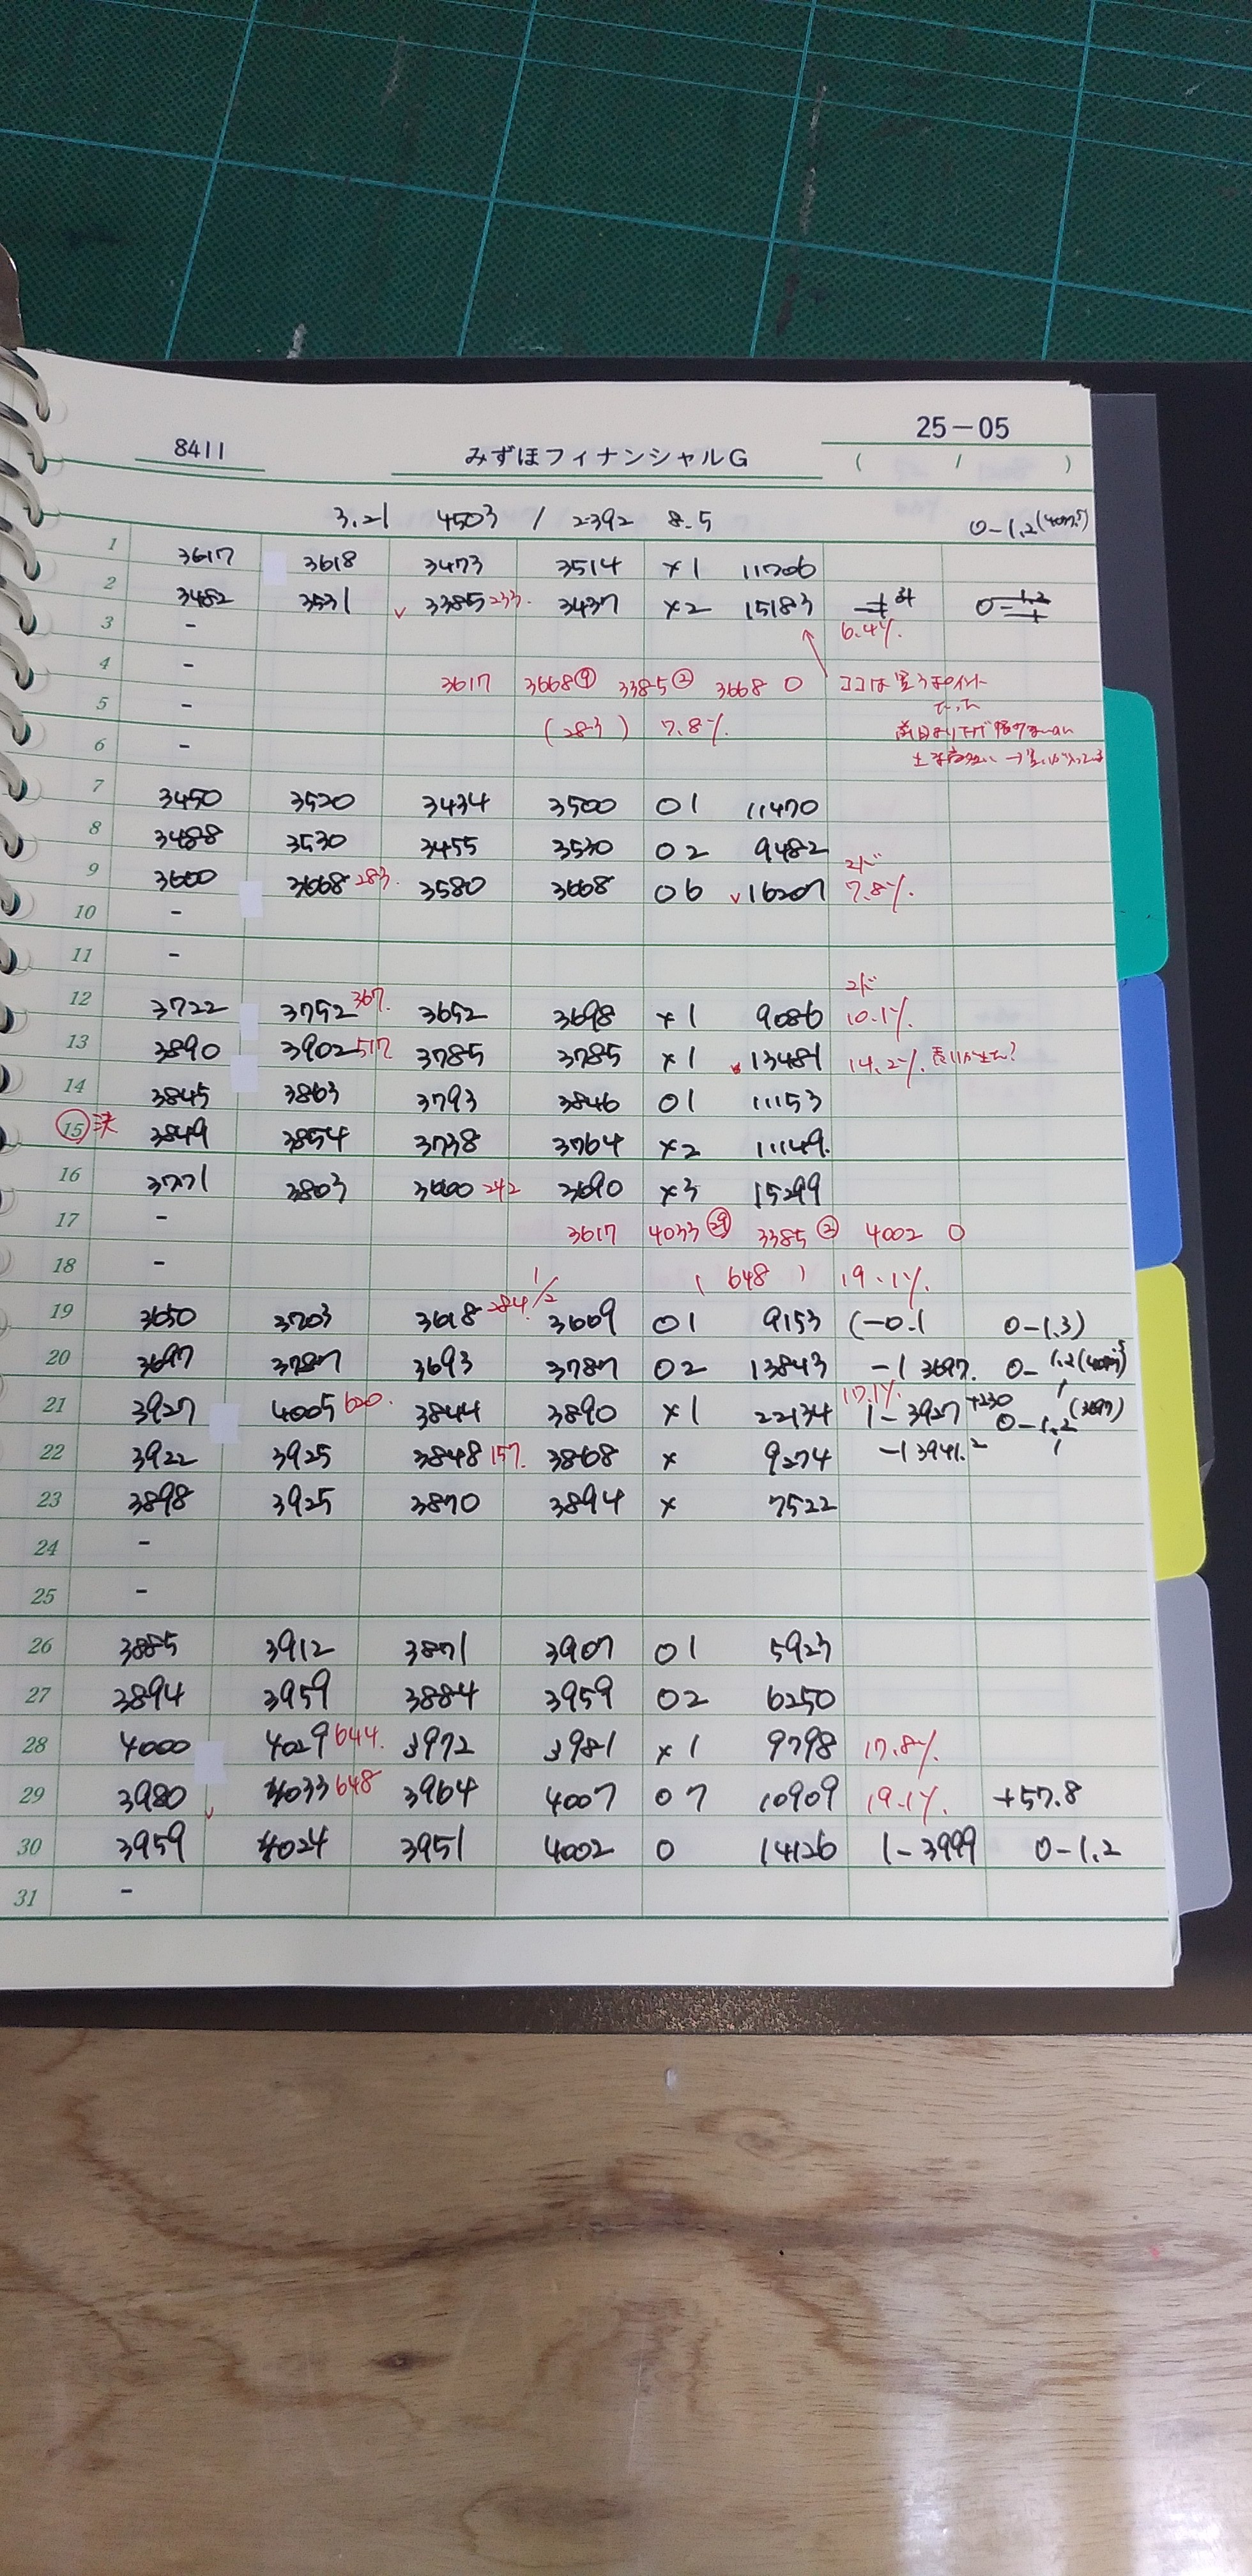 25-05
8411 みずほフィナンシャルG ( / )
3.21 4503 / 2392 8.5 0-1.2
1 3617 3618 3473 3514 ×1 11706
2 3482 3531 ✓ 3385 233. 3437 ×2 15183
3 - 6.4%.
4 - 3617 3668⑨ 3385② 3668 0 ココは買うポイント
5 - (283) 7.8% だった
6 -
7 3450 3520 3434 3500 01 11470
8 3488 3530 3455 3530 02 9482
9 3600 3668 283. 3580 3668 06 ✓16207 7.8%.
10 -
11 -
12 3722 3752 367. 3652 3698 ×1 9086 10.1%
13 3890 3902 517 3785 3785 ×1 13481 14.2%.
14 3845 3863 3793 3846 01 11153
⑮ 決 3849 3854 3738 3764 ×2 11149.
16 3771 3803 3660 242 3690 ×3 15299
17 - 3617 4033㉙ 3385② 4002 0
18 - ( 648 ) 19.1%.
19 3650 3703 3618 284 1/2 3669 01 9153 (-0.1 0-1.3)
20 3697 3787 3693 3787 02 13843 -1 3697. 0-1.2
21 3927 4005 620. 3844 3890 ×1 22134 17.1%. 1-3927 +230 0-1.2 (3697)
22 3922 3925 3848 157. 3868 × 9274 -1 3941.2
23 3898 3925 3870 3894 × 7522
24 -
25 -
26 3885 3912 3871 3907 01 5923
27 3894 3959 3884 3959 02 6250
28 4000 4029 644. 3972 3981 ×1 9798 17.8%.
29 3980 ✓ 4033 648 3964 4007 07 10909 19.1%. +57.8
30 3959 4024 3951 4002 0 14126 1-3999 0-1.2
31 -